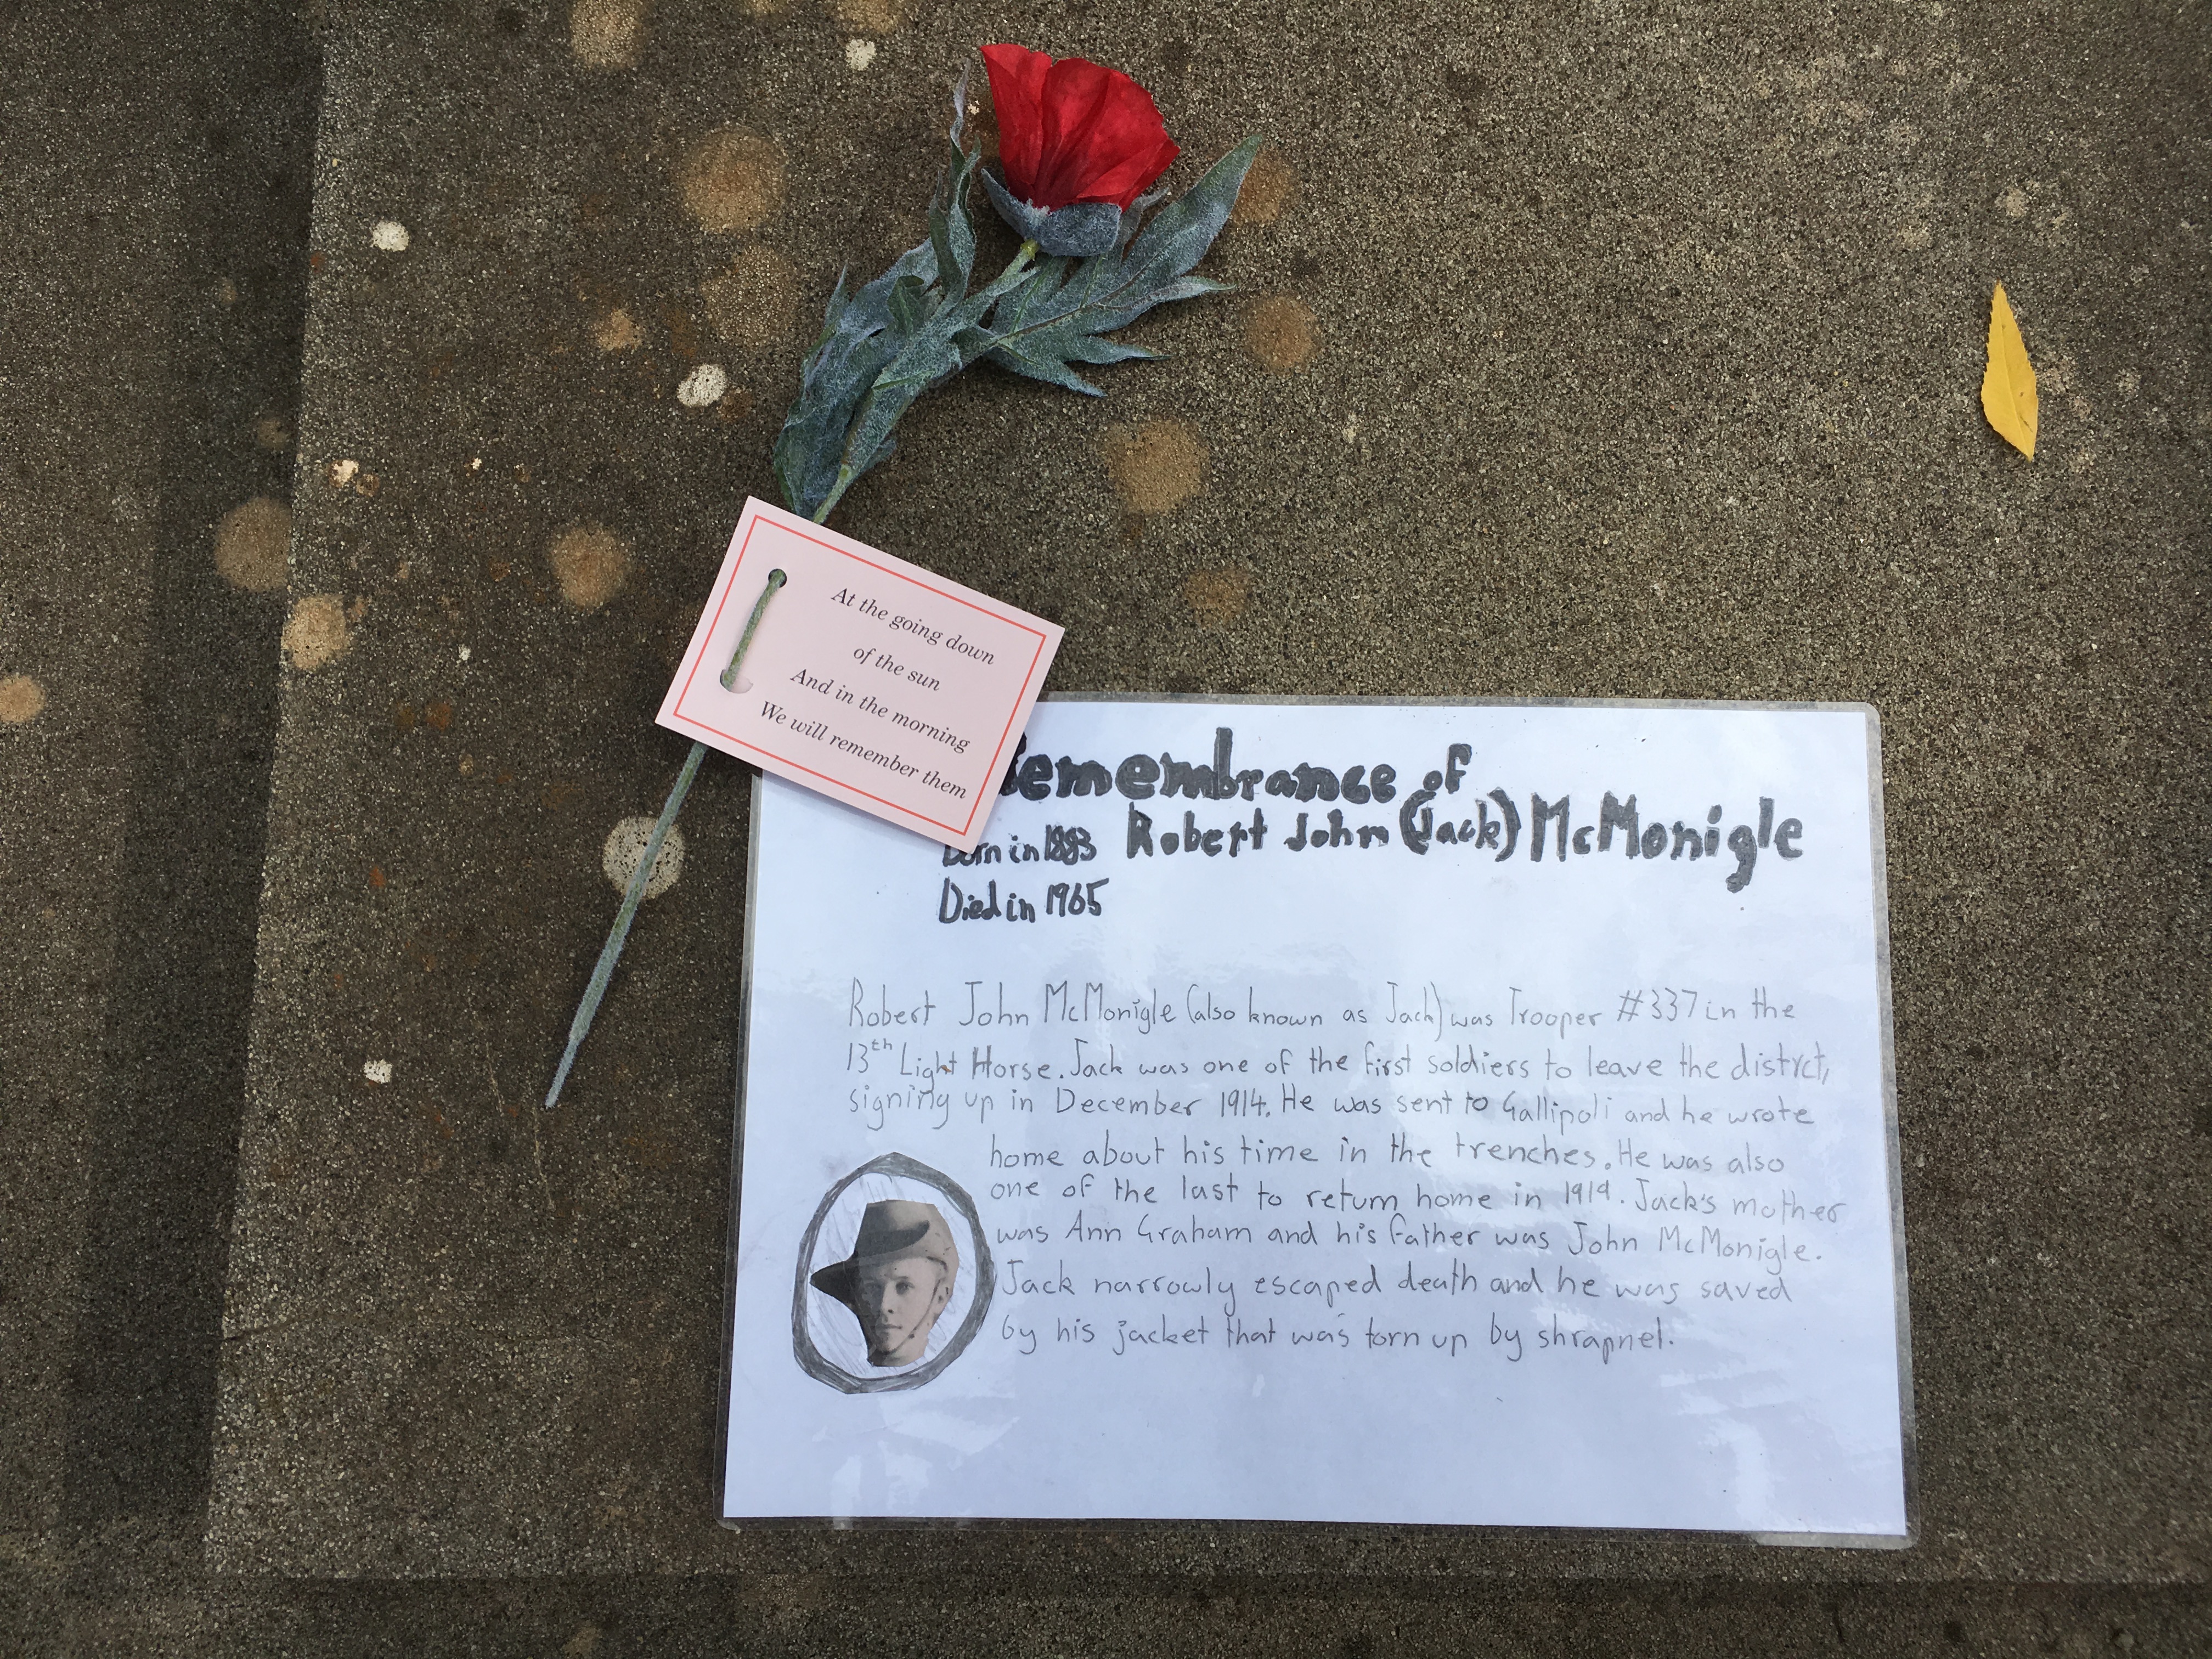 At the going down
of the sun
And in the morning
We will remember them
Remembrance of
Robert John (Jack) McMonigle
Born in 1883
Died in 1965
Robert John McMonigle (also known as Jack) was Trooper #337 in the
13th Light Horse. Jack was one of the first soldiers to leave the distrct,
signing up in December 1914. He was sent to Gallipoli and he wrote
home about his time in the trenches. He was also
one of the last to return home in 1919. Jack's mother
was Ann Graham and his father was John McMonigle.
Jack narrowly escaped death and he was saved
by his jacket that was torn up by shrapnel.